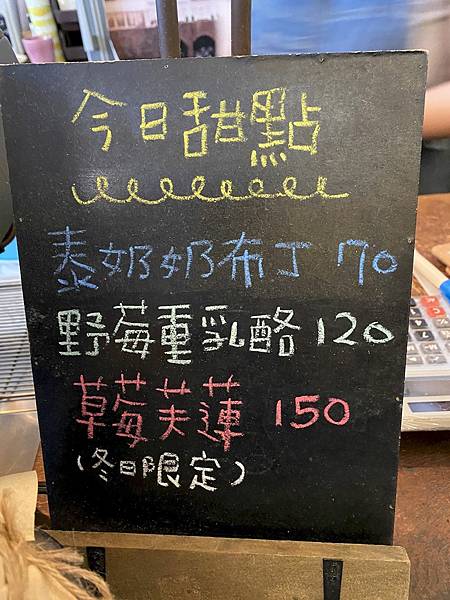 今日甜點
泰奶奶布丁 70
野莓重乳酪 120
草莓芙蓮 150
(冬日限定)